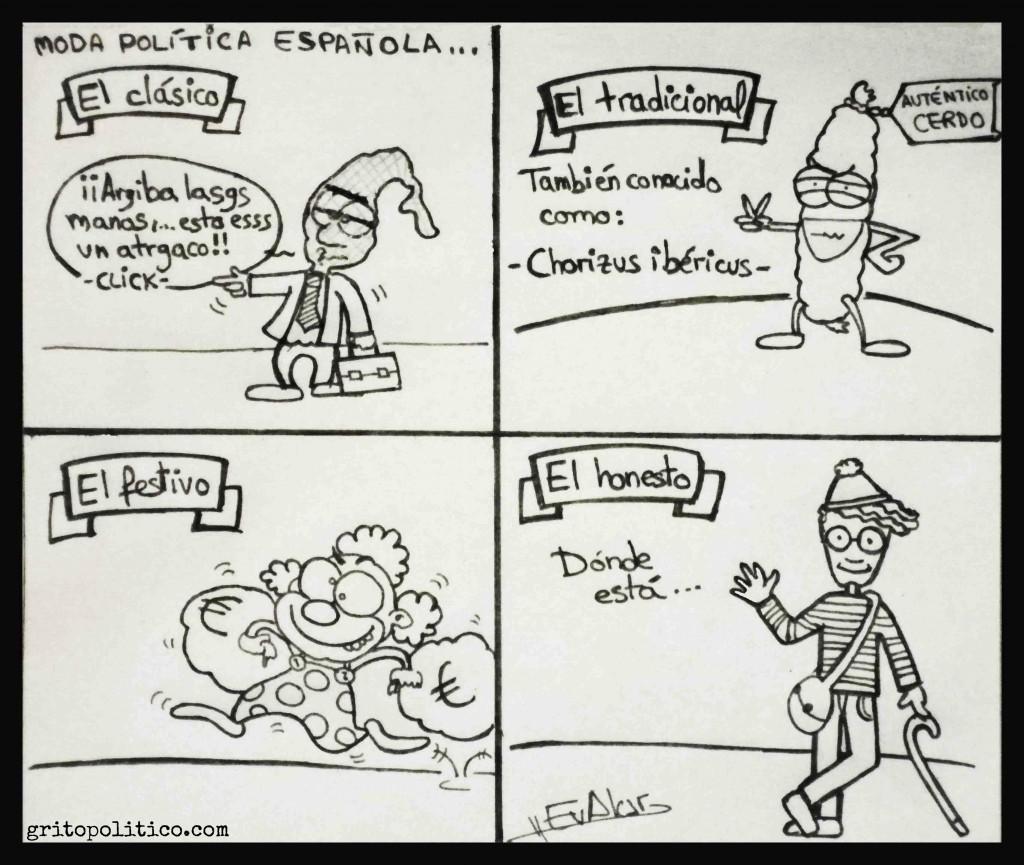 MODA POLÍTICA ESPAÑOLA...
El clásico
¡¡Argiba lasgs
manos,... esto esss
un atrgaco!!
-CLICK-
El tradicional
AUTÉNTICO
CERDO
También conocido
como:
- Chorizus ibéricus -
El festivo
€
€
El honesto
Dónde
está...
gritopolitico.com